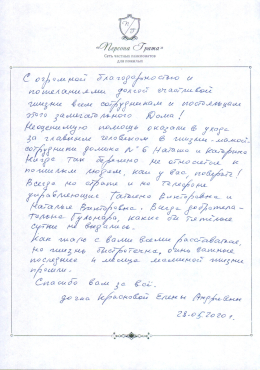 Сеть частных пансионатов
для пожилых
С огромной благодарностью и
пожеланиями долгой счастливой
жизни всем сотрудникам и постояльцам
этого замечательного Дома!
Неоценимую помощь оказали в уходе
за главным человеком в жизни - мамой
сотрудники домика №6 Наташа и Катерина
Нигде так бережно не относятся к
пожилым людям, как у вас, поверьте!
Всегда на страже и на телефоне
управляющие Татьяна Викторовна и
Наталья Викторовна. Всегда доброжела-
тельна Гульнара, какие бы тяжёлые
сутки не выдались.
Как жаль с вами всеми расставаться,
но жизнь быстротечна, очень важные
последние 4 месяца маминой жизни
прошли.
Спасибо вам за всё.
дочь Красновой Елены Андреевны
28.05.2020 г.